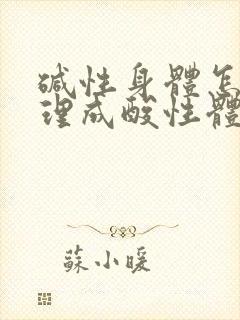 碱性身體怎
理成酸性體
蘇小暖